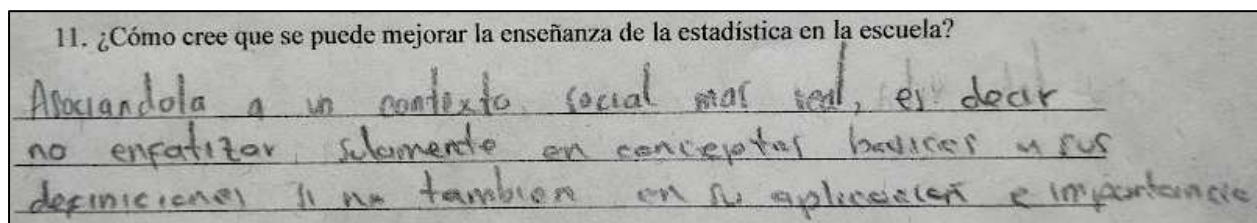 11. ¿Cómo cree que se puede mejorar la enseñanza de la estadística en la escuela?
Asociandola a un contexto social mas real, es decir
no enfatizar solamente en conceptos basicos y sus
definiciones si no tambien en su aplicación e importancia